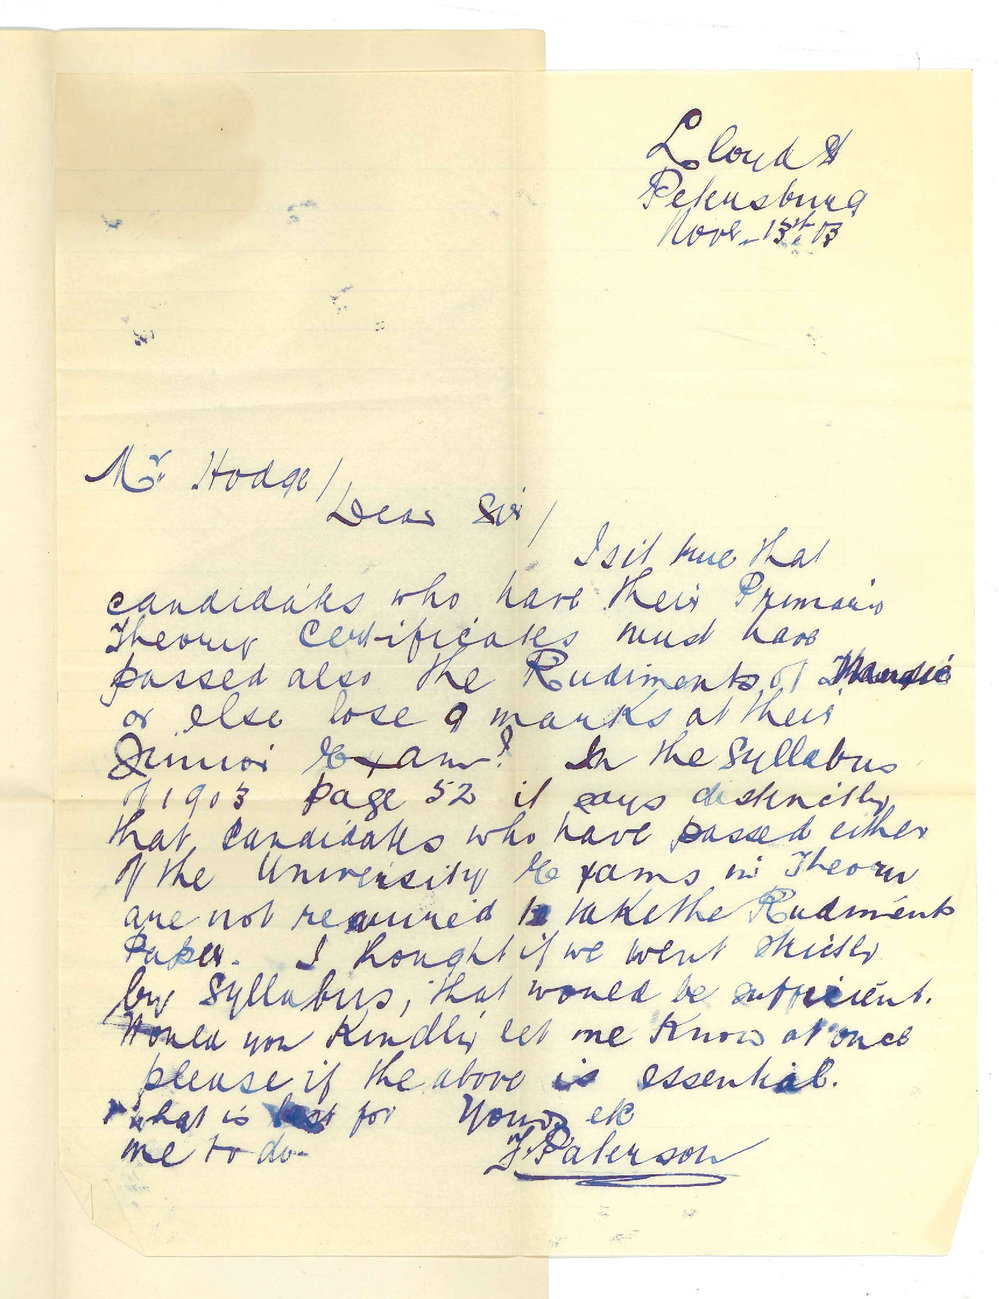 Lloyd St
Petersburg
Novr. 13st 03
Mr. Hodge/
Dear Sir/
Is it true that
candidates who have their Primary
Theory Certificates must have
passed also the Rudiments of
or else lose 9 marks at their
Junior Exam? In the Syllabus
of 1903 page 52 it says distinctly
that candidates who have passed either
of the University Exams in Theory
are not required to take the Rudiments
Paper. I thought if we went strictly
by Syllabus, that would be sufficient.
Would you kindly let me know at once
please if the above is essential.
What is best for Yours etc
me to do. F. Paterson